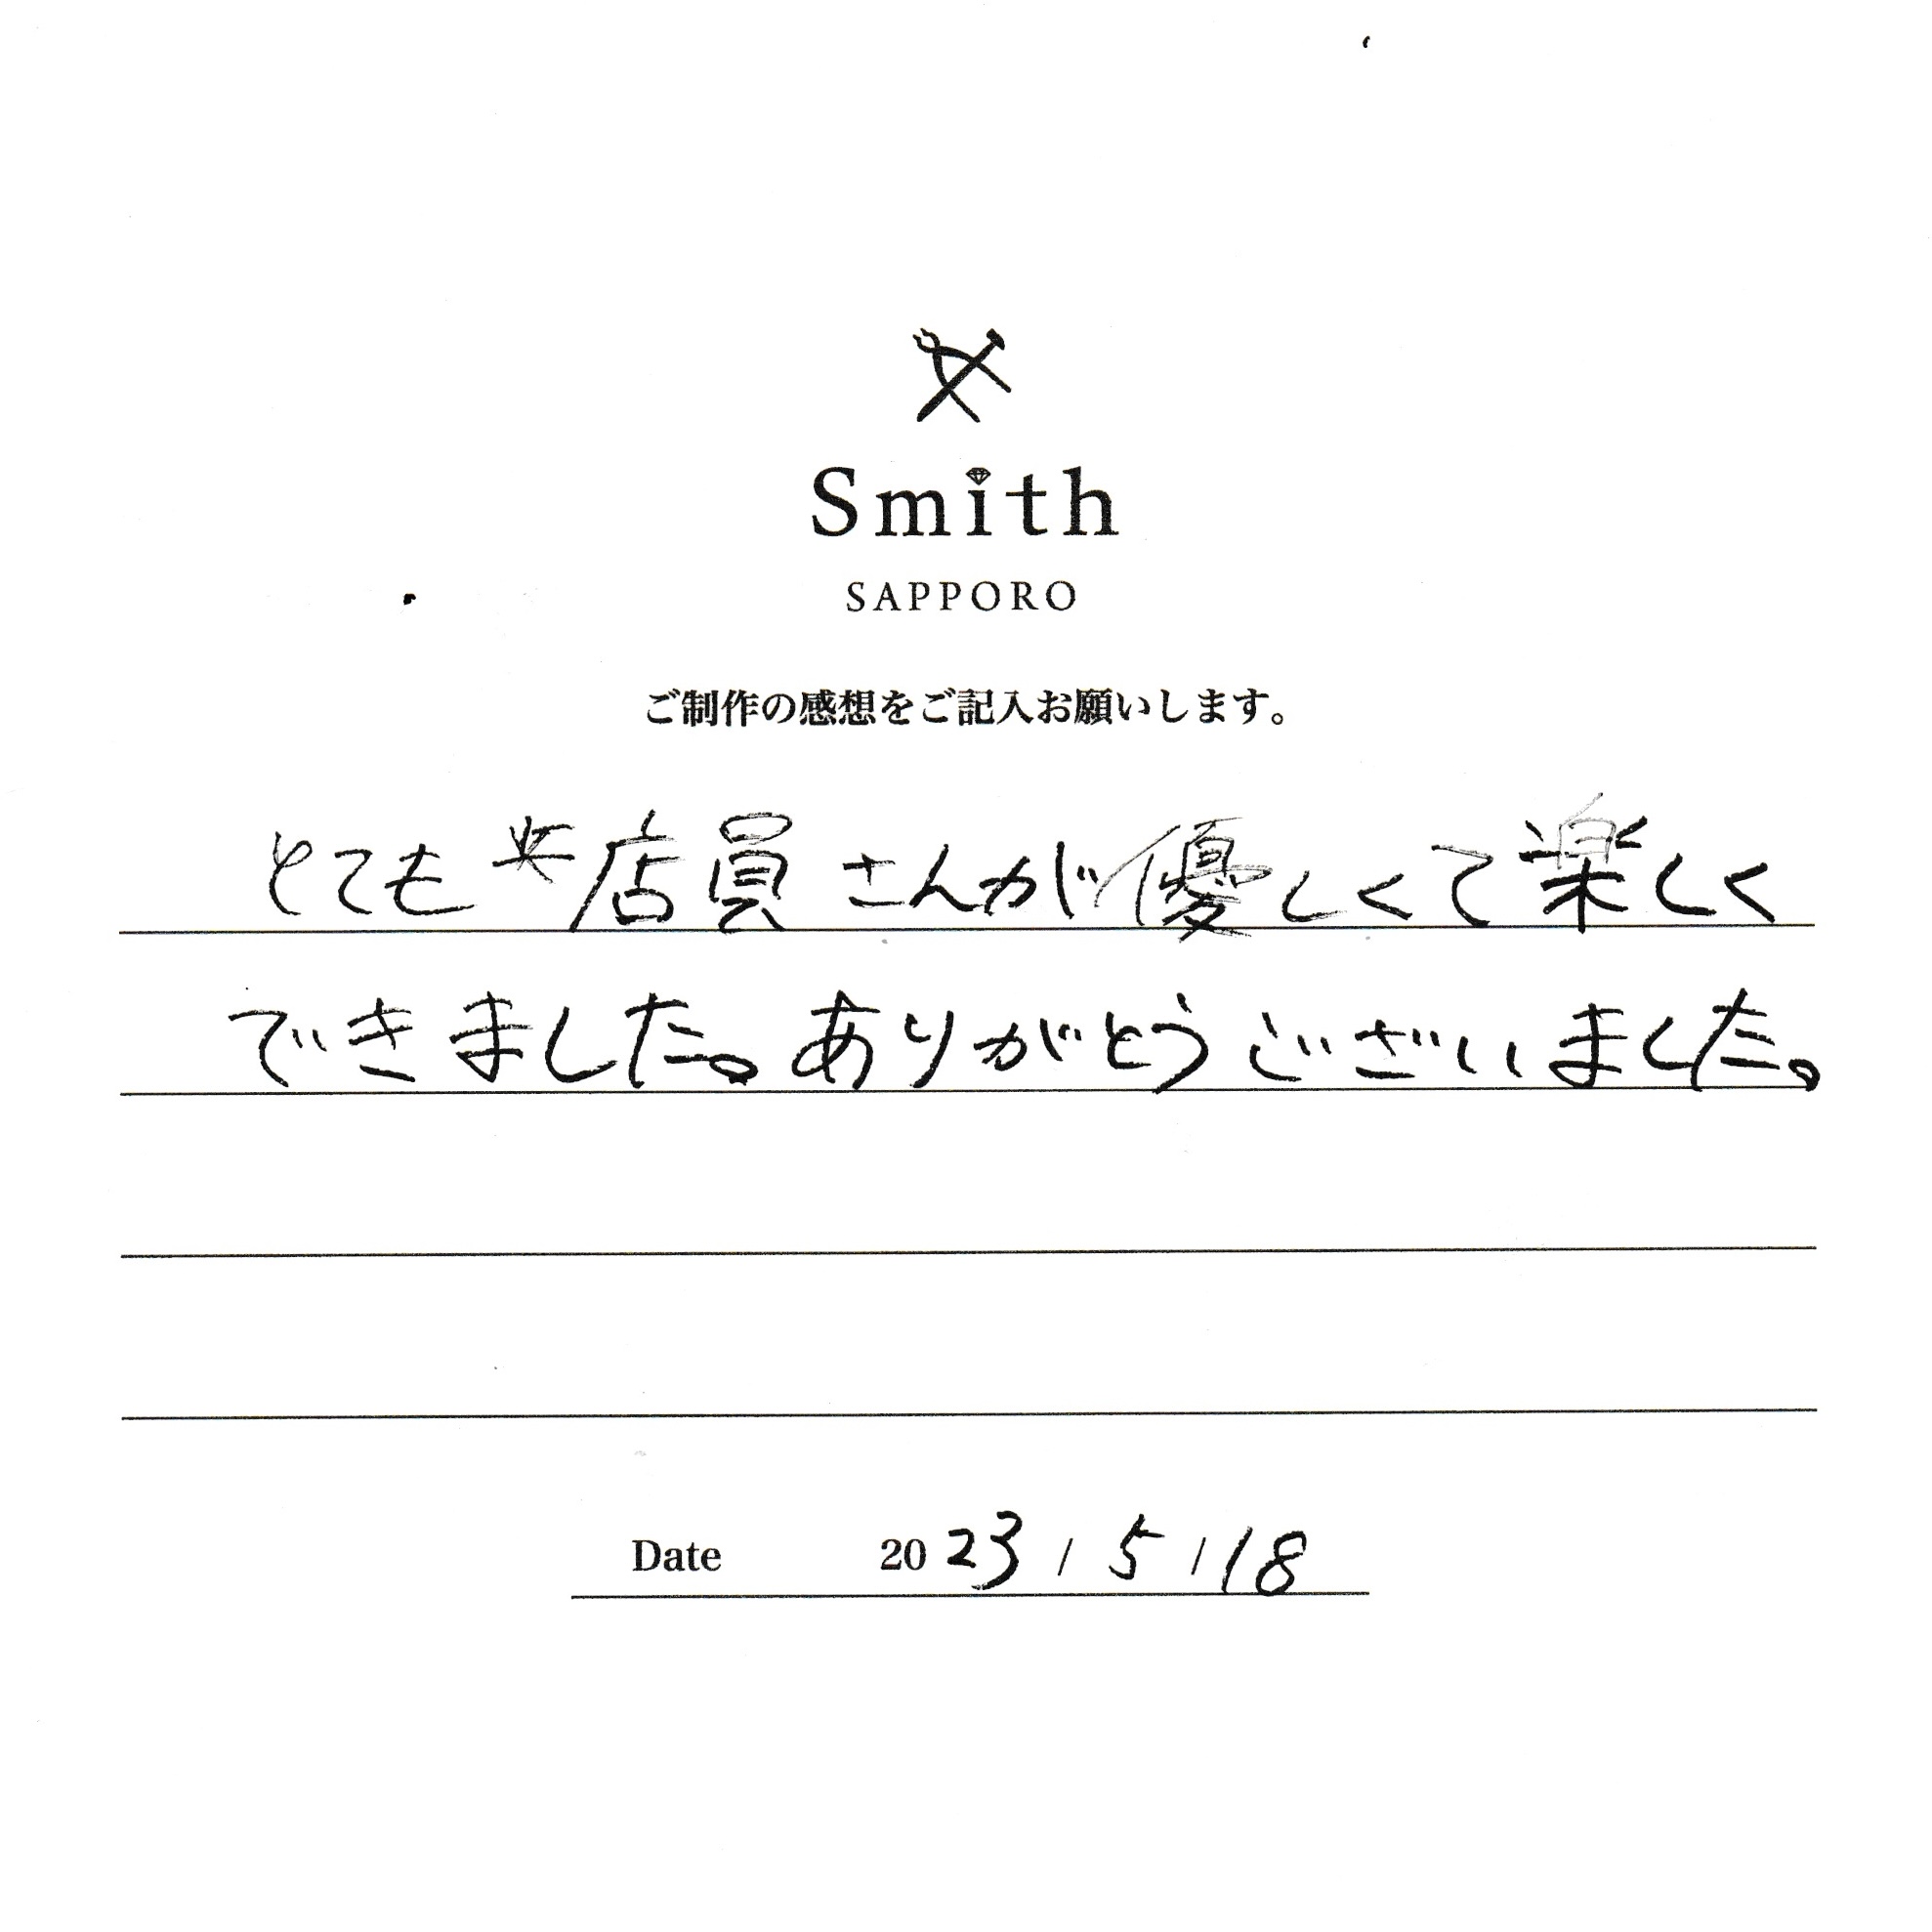 Smith
SAPPORO
ご制作の感想をご記入お願いします。
とても店員さんが優しくて楽しく
できました。ありがとうございました。
Date 2023/5/18